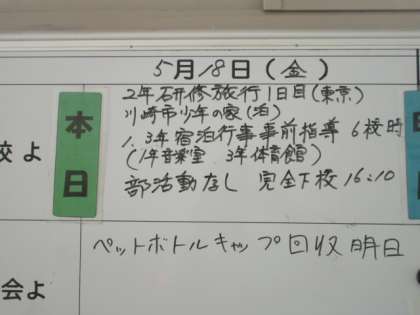 5月18日(金)
本日
2年研修旅行1日目(東京)
川崎市少年の家(泊)
1.3年宿泊行事事前指導 6校時
(1年音楽室 3年体育館)
校よ
部活動なし 完全下校16:10
ペットボトルキャップ回収 明日
会よ